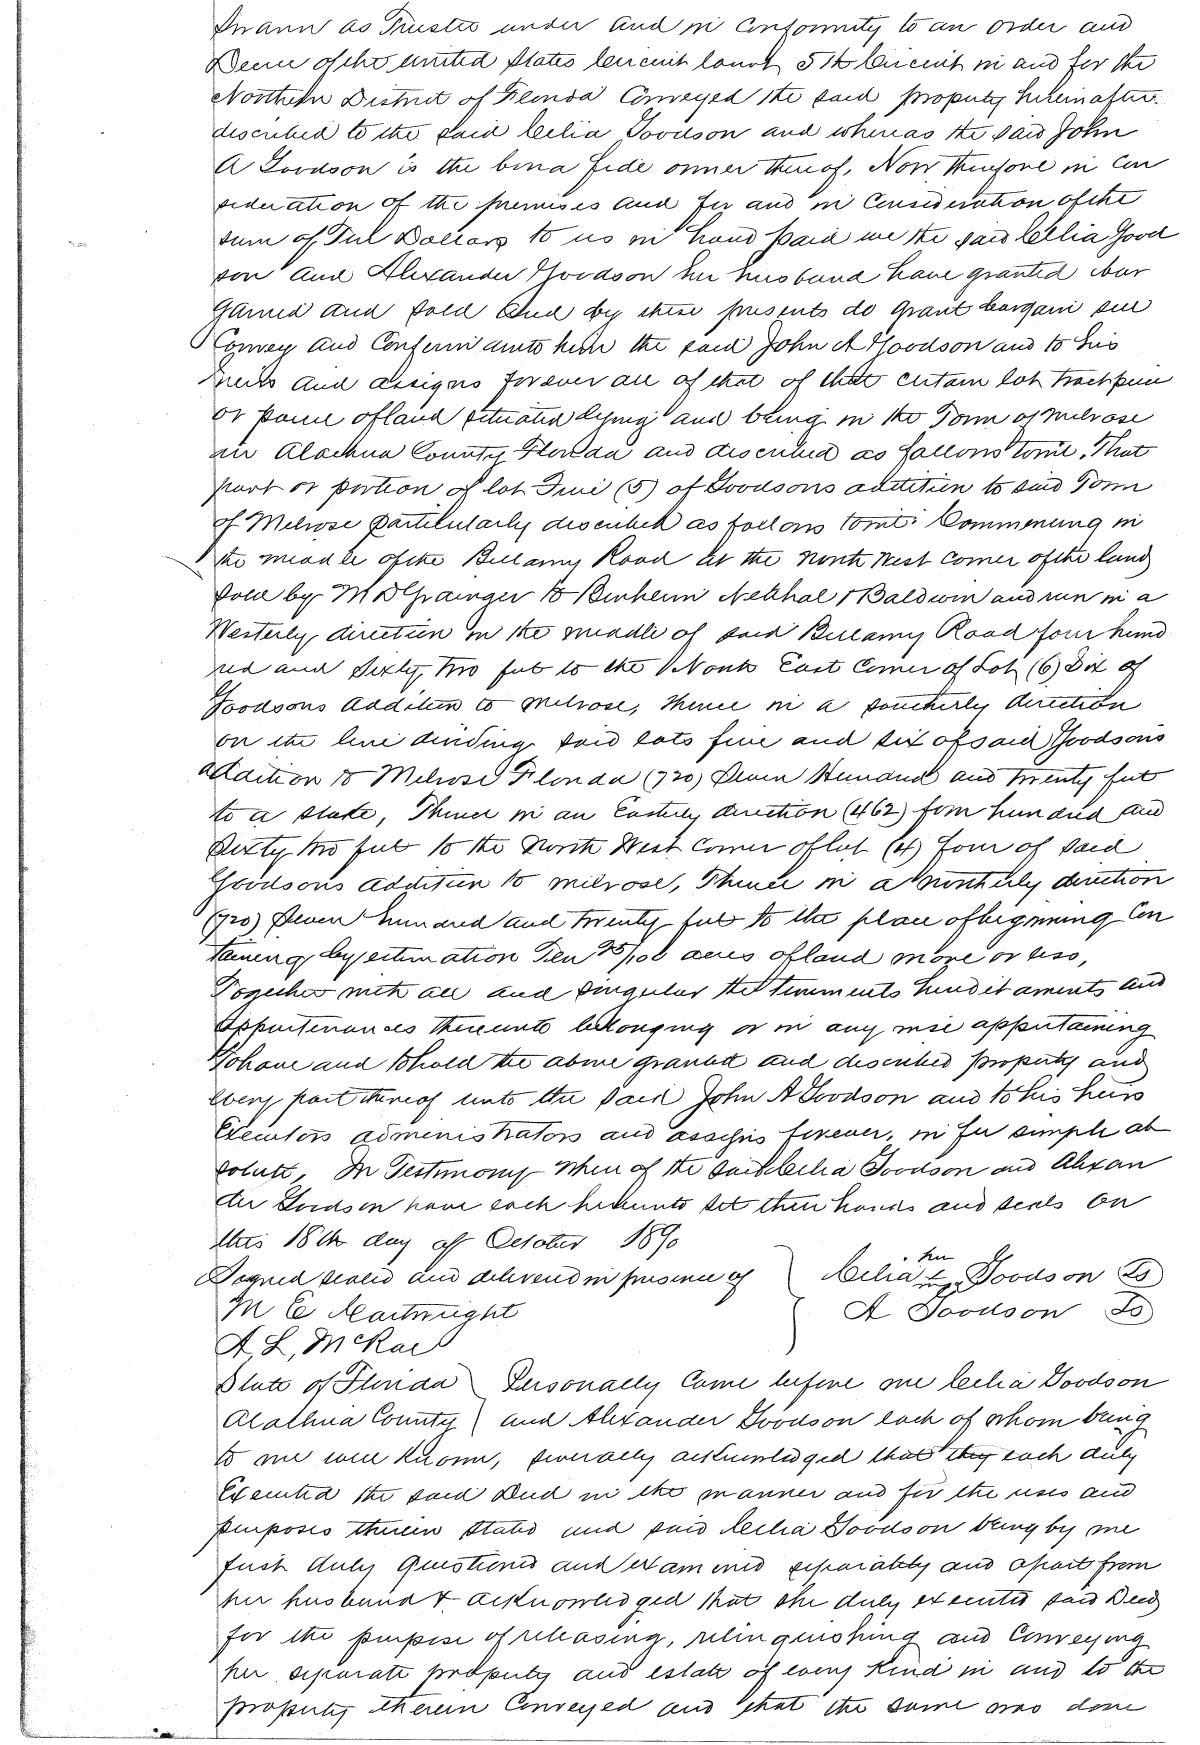 Swann as Trustee under and in Conformity to an order and
Decree of the united States Circuit Court 5th Circuit in and for the
Northern District of Florida Conveyed the said property hereinafter
described to the said Celia Goodson and whereas the said John
A Goodson is the bona fide owner thereof, Now therefore in Con
sideration of the premises and for and in Consideration of the
sum of Ten Dollars to us in hand paid we the said Celia Good
son and Alexander Goodson her husband have granted bar
gained and sold and by these presents do grant bargain sell
Convey and Confirm unto him the said John A Goodson and to his
heirs and assigns forever all of that of that certain lot tract piece
or parcel of land situated lying and being in the Town of Melrose
in Alachua County Florida and described as follows towit. That
part or portion of lot Five (5) of Goodsons addition to said Town
of Melrose particularly described as follows towit: Commencing in
the middle of the Bellamy Road at the North West corner of the land
sold by M D Grainger to & Baldwin and run in a
Westerly direction in the middle of said Bellamy Road four hund
red and Sixty two feet to the North East Corner of Lot (6) Six of
Goodsons addition to Melrose, thence in a southerly direction
on the line dividing said lots five and six of said Goodsons
addition to Melrose Florida (720) Seven Hundred and twenty feet
to a stake, Thence in an Easterly direction (462) four hundred and
Sixty two feet to the North West Corner of lot (4) four of said
Goodsons addition to Melrose, Thence in a northerly direction
(720) Seven hundred and twenty feet to the place of beginning Con
taining by estimation Ten /100 acres of land more or less,
Together with all and singular the tenements hereditaments and
appurtenances thereunto belonging or in any wise appertaining
To have and to hold the above granted and described property and
every part thereof unto the said John A Goodson and to his heirs
Executors administrators and assigns forever, in fee simple ab
solute, In Testimony Whereof the said Celia Goodson and Alexan
der Goodson have each hereunto set their hands and seals on
this 18th day of October 1890
Signed sealed and delivered in presence of } Celia her x Goodson Ls
M E Cartwright } A Goodson Ls
A, L, McRae
State of Florida } Personally Came before me Celia Goodson
Alachua County } and Alexander Goodson each of whom being
to me well known, severally acknowledged that they each duly
Executed the said Deed in the manner and for the uses and
purposes therein stated and said Celia Goodson being by me
first duly Questioned and examined separately and apart from
her husband & acknowledged that she duly executed said Deed
for the purpose of releasing, relinquishing and Conveying
her separate property and estate of every kind in and to the
property therein Conveyed and that the same was done